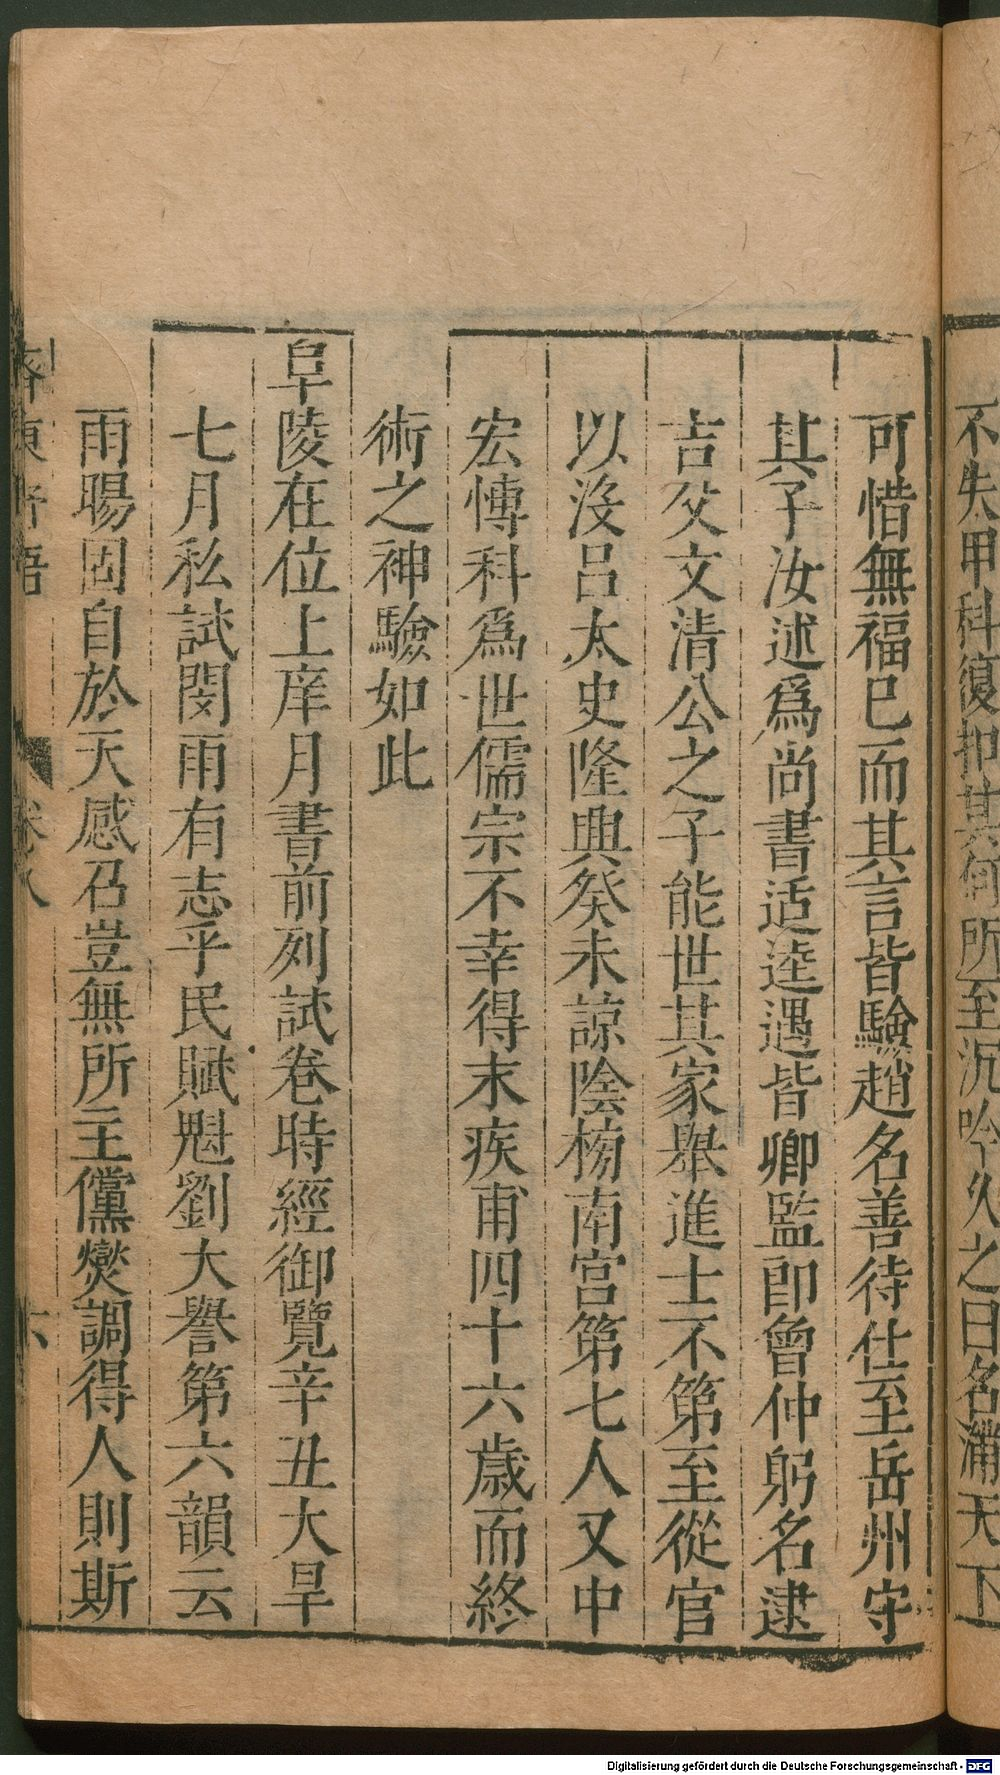 不失甲科復扣其何所至沉吟久之曰名滿天下
可惜無福已而其言皆驗趙名善待仕至岳州守
其子汝述爲尚書适逵遇皆卿監即曾仲躬名逮
吉父文清公之子能世其家舉進士不第至從官
以沒呂太史隆興癸未諒陰榜南宫第七人又中
宏博科爲世儒宗不幸得末疾甫四十六歳而終
術之神驗如此
阜陵在位上庠月書前列試卷時經御覽辛丑大旱
七月私試閔雨有志乎民賦魁劉大譽第六韻云
雨暘固自於天感召豈無所主儻燮調得人則斯
齊東野語 卷八 六
Digitalisierung gefördert durch die Deutsche Forschungsgemeinschaft - DFG